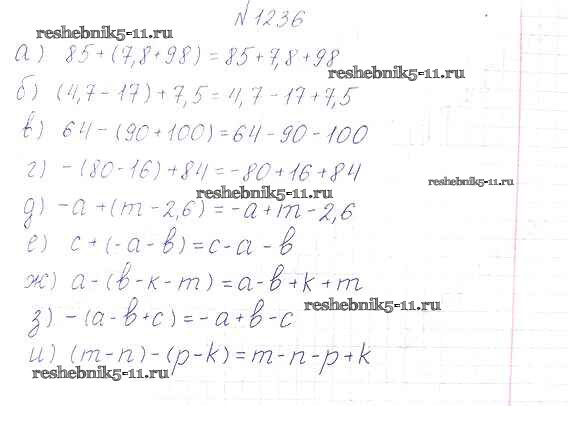 №1236
reshebnik5-11.ru
а) 85+(7,8+98)=85+7,8+98
reshebnik5-11.ru
б) (4,7-17)+7,5=4,7-17+7,5
в) 64-(90+100)=64-90-100
г) -(80-16)+84=-80+16+84
reshebnik5-11.ru
reshebnik5-11.ru
д) -a+(m-2,6)=-a+m-2,6
е) c+(-a-b)=c-a-b
ж) a-(b-k-m)=a-b+k+m
reshebnik5-11.ru
з) -(a-b+c)=-a+b-c
и) (m-n)-(p-k)=m-n-p+k
reshebnik5-11.ru